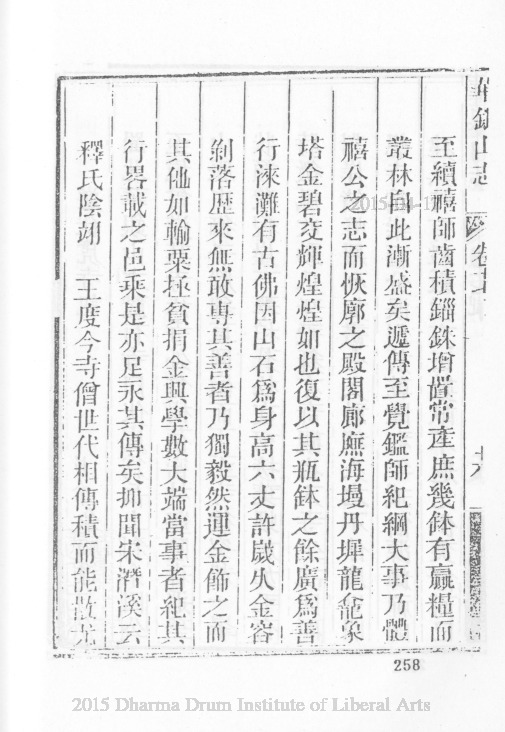 華銀山志 卷十 十八
至續禧師齒積錙銖增置常產庶幾鉢有贏糧而
叢林自此漸盛矣遞傳至覺鑑師紀綱大事乃體
禧公之志而恢廓之殿閣廊廡海墁丹墀龍龕象
塔金碧交輝煌煌如也復以其瓶鉢之餘廣爲善
行淶灘有古佛因山石爲身高六丈許歲久金容
剝落歴來無敢專其善者乃獨毅然運金飾之而
其他如輸粟拯貧捐金興學數大端當事者紀其
行畧載之邑乘是亦足永其傳矣抑聞宋濳溪云
釋氏陰翊 王度今寺僧世代相傳積而能散尤
258
2015-04-1
2015 Dharma Drum Institute of Liberal Arts